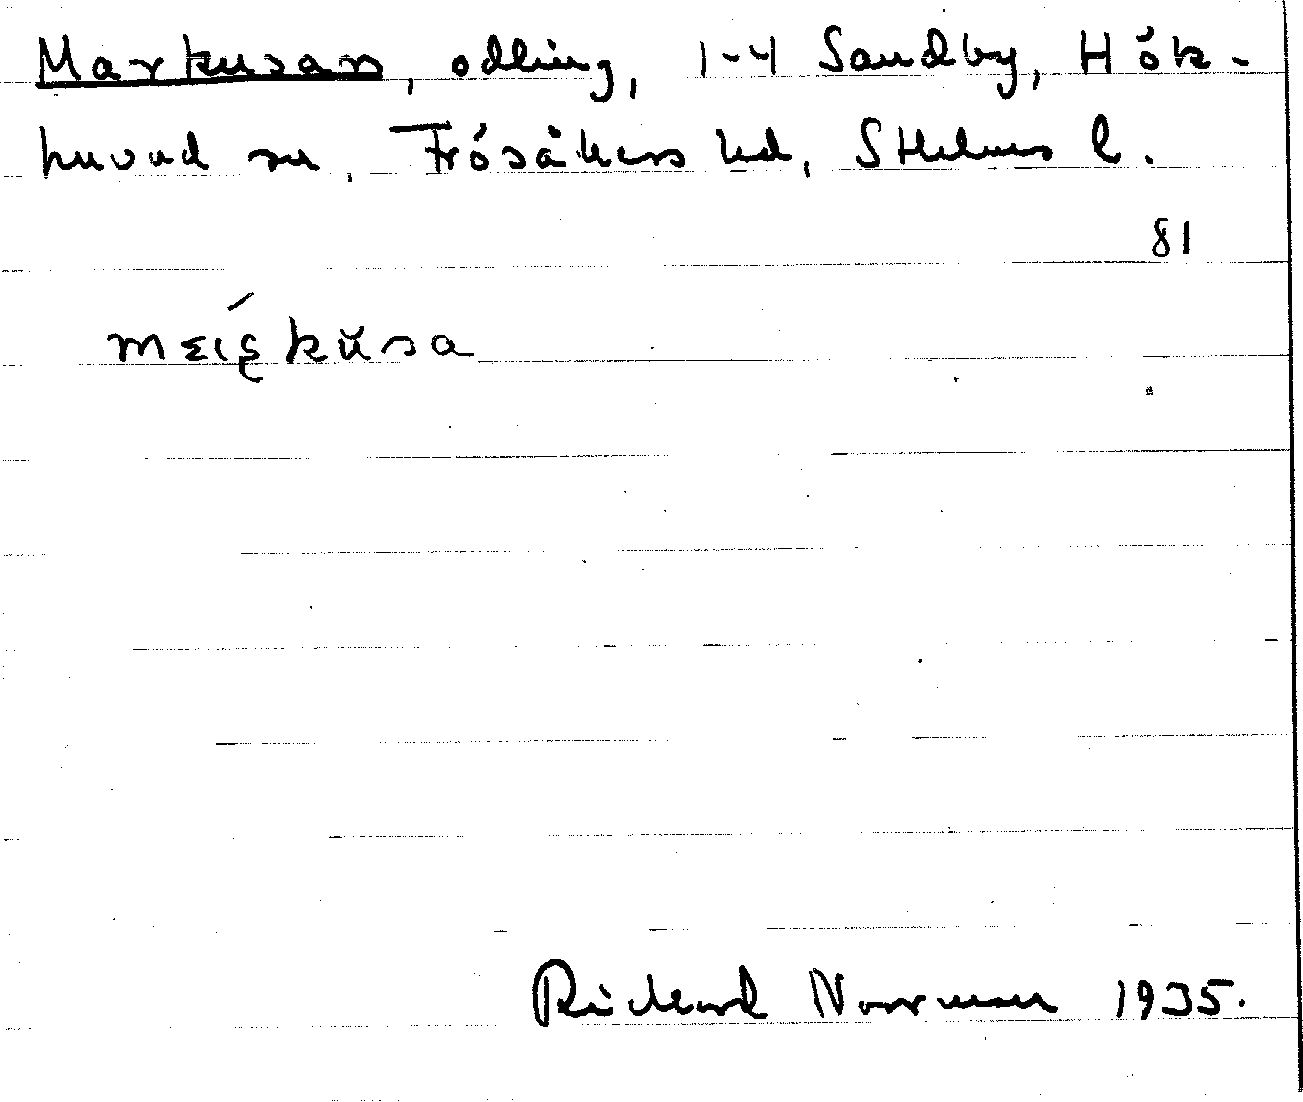 Markusan, odling, 1-4 Sandby, Hök-
huvud sn, Frösåkers hd, Sthlms l.
81
Rickard Norrman 1935.